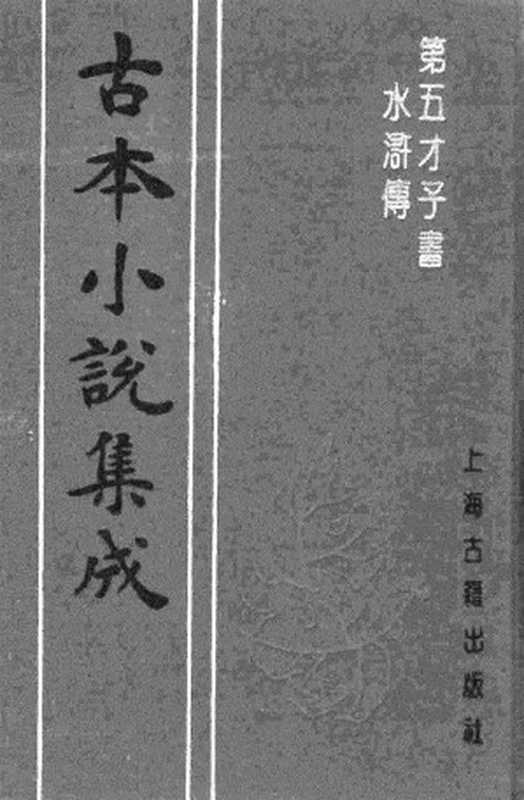 第五才子書
水滸傳
上海古籍出版社
古本小說集成